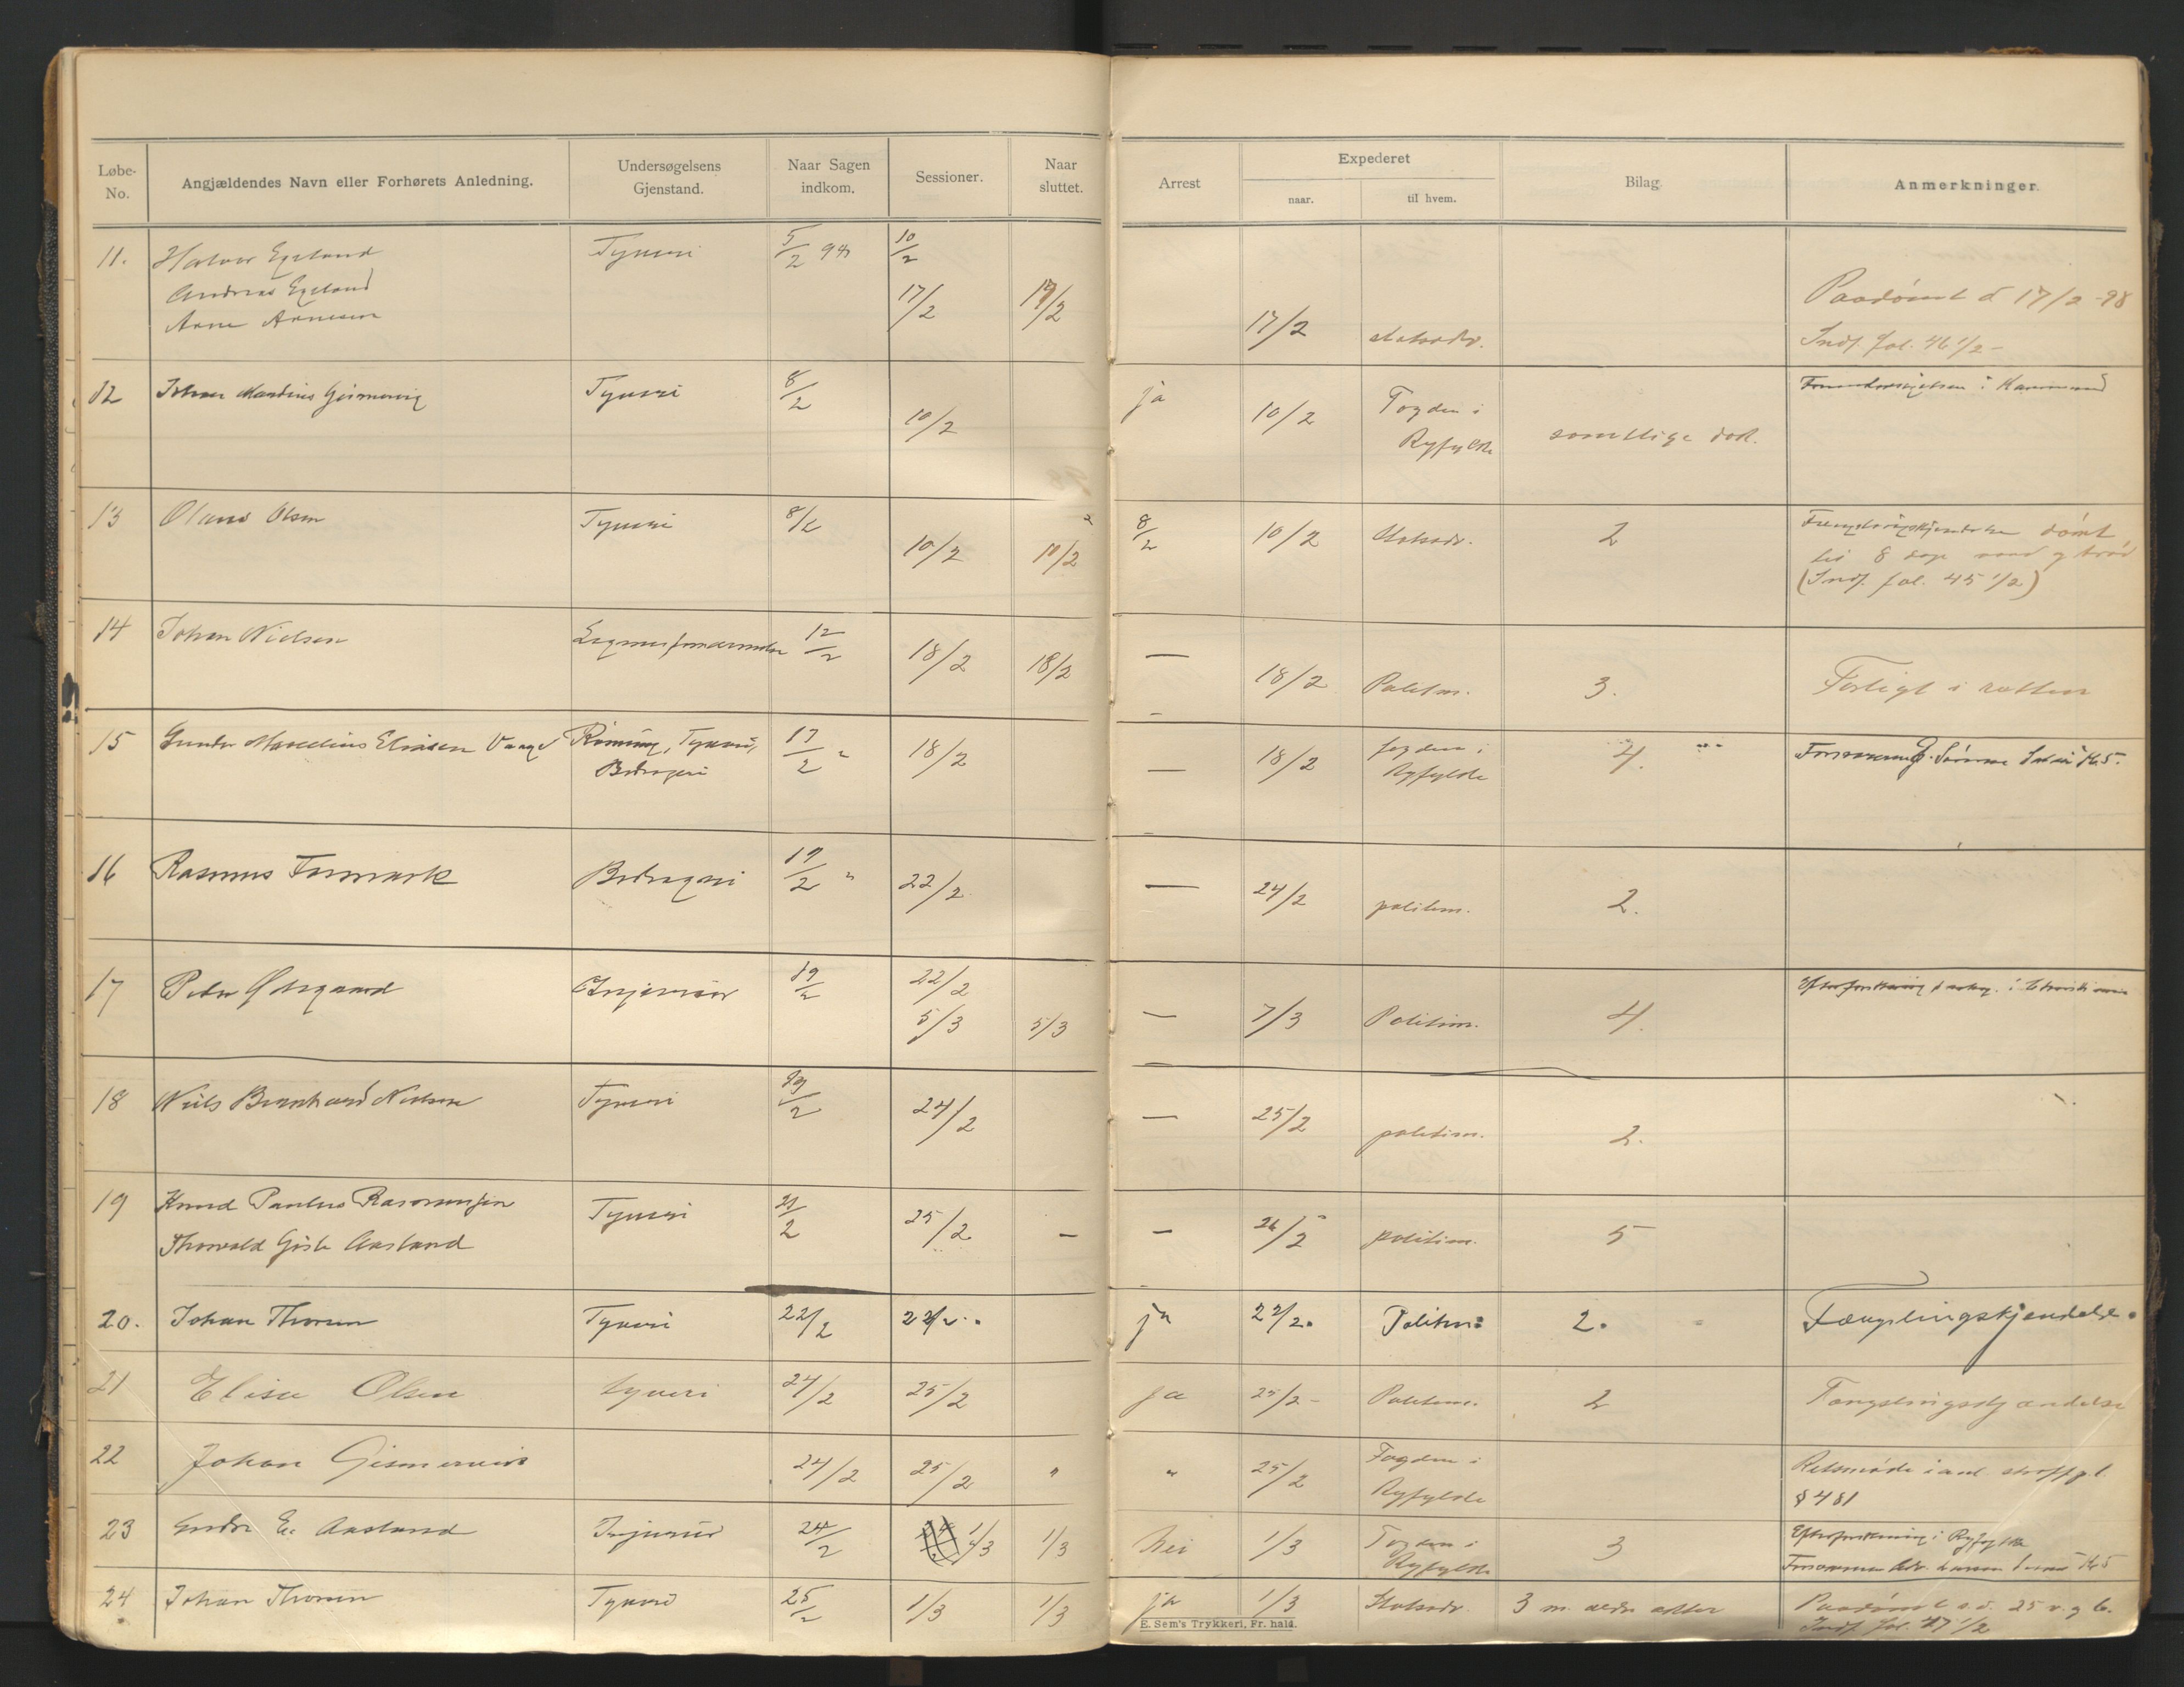 Løbe-No.
Angjældendes Navn eller Forhørets Anledning.
Undersøgelsens Gjenstand.
Naar Sagen indkom.
Sessioner.
Naar sluttet.
Arrest
Expederet
naar.
til hvem.
Bilag.
Anmerkninger.
11. Halvor Egeland Tyveri 5/2 98 10/2
Andreas Egeland 17/2 17/2 17/2 statsadv. Paadömt d 17/2 -98
Arne Arnesen Indf. fol. 46 1/2 -
12 Johan Martinius Gismervig Tyveri 8/2 10/2 ja 10/2 Fogden i Ryfylke samtlige dok.
13 Olaus Olsen Tyveri 8/2 10/2 10/2 8/2 10/2 Statsadv. 2 Fængslingskjendelse dömt
til 8 dage vand og bröd
(Indf. fol. 45 1/2)
14 Johan Nielsen Legemsfornærmelse 12/2 18/2 18/2 — 18/2 Politm. 3. Forligt i retten
15 Gunder Marelius Eliasen Vaage Römning, Tyveri, Bedrageri 17/2 " 18/2 — 18/2 fogden i Ryfylke 4.
16 Rasmus Formark Bedrageri 19/2 " 22/2 — 24/2 politm. 2.
17 Peter Østgaard Injurier 19/2 22/2 5/3 5/3 — 7/3 Politim. 4.
18 Niels Bernhard Nielsen Tyveri 24/2 — 25/2 politim. 2.
19 Knud Paulus Rasmussen Tyveri 21/2 25/2 — — 26/2 politim. 5
Thorvald Aasland
20. Johan Thorsen Tyveri 22/2 22/2 ja 22/2. Politm. 2. Fængslingskjendelse.
21 Elise Olsen tyveri 24/2 25/2 ja 25/2 - Politim. 2 Fængslingskjendelse
22 Johan Gismervik 24/2 25/2 " " 25/2 Fogden i Ryfylke Retsmöde i anl. straffpl. § 481
23 Endre E. Aasland Injurier 24/2 1/3 1/3 Nei 1/3 Fogden i Ryfylke 3 Efterforskning i Ryfylke
24 Johan Thorsen Tyveri 25/2 1/3 1/3 ja 1/3 Statsadv. 3 m. ældre akter Paadömt s.d. 25 v. og b.
Indf. fol. 47 1/2
E. Sem's Trykkeri, Fr. hald.